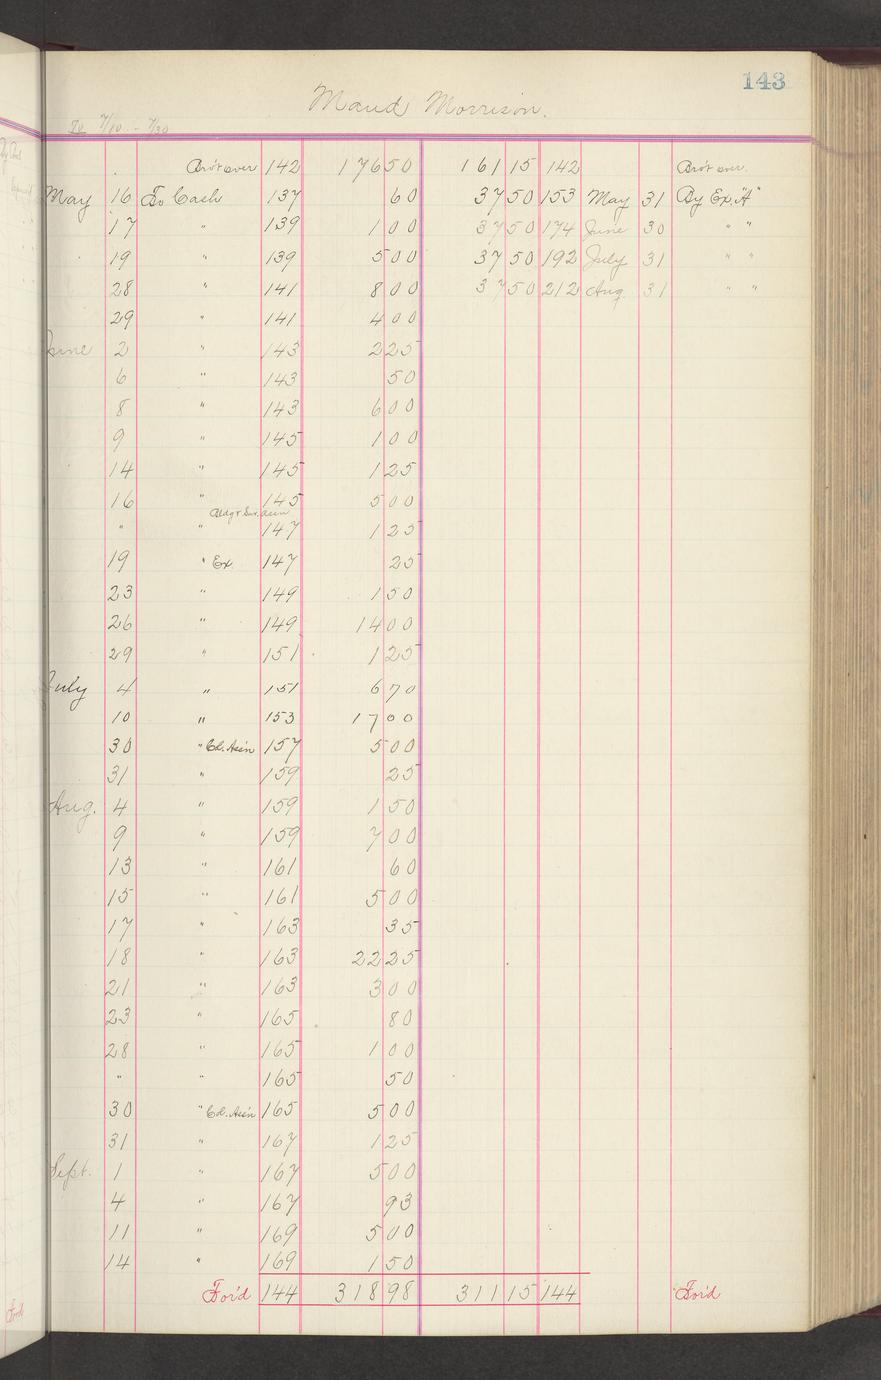 143
Maud Morrison.
To 7/10 - 7/30
Bro't over 142 176 50 161 15 142 Bro't over.
May 16 To Cash 137 60 37 50 153 May 31 By Ex. "A"
17 " 139 1 00 37 50 174 June 30 " "
19 " 139 5 00 37 50 192 July 31 " "
28 " 141 8 00 37 50 212 Aug. 31 " "
29 " 141 4 00
June 2 " 143 2 25
6 " 143 50
8 " 143 6 00
9 " 145 1 00
14 " 145 1 25
16 " 145 5 00
Bldg & Sav. Assn
" " 147 1 25
19 " Ex 147 25
23 " 149 1 50
26 " 149 14 00
29 " 151 1 25
July 4 " 151 6 70
10 " 153 17 00
30 " Col. Ass'n 157 5 00
31 " 159 25
Aug. 4 " 159 1 50
9 " 159 7 00
13 " 161 60
15 " 161 5 00
17 " 163 35
18 " 163 22 25
21 " 163 3 00
23 " 165 80
28 " 165 1 00
" " 165 50
30 " Col. Ass'n 165 5 00
31 " 167 1 25
Sept. 1 " 167 5 00
4 " 167 93
11 " 169 5 00
14 " 169 1 50
For'd 144 318 98 311 15 144 For'd